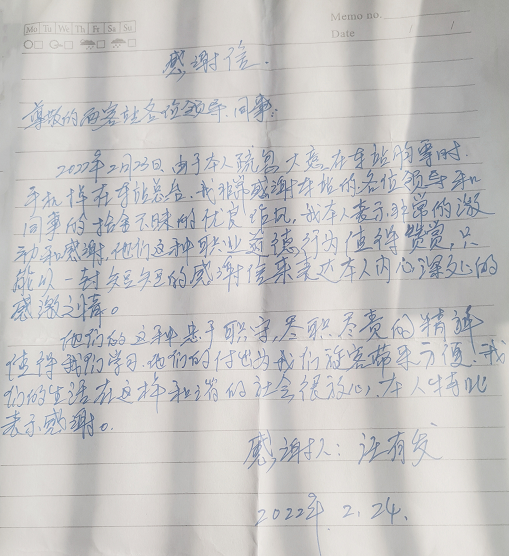 Memo no.
Mo Tu We Th Fr Sa Su
Date
感谢信.
尊敬的西客站各位领导.同事:
2022年2月23日.由于本人疏忽大意在车站购票时.
手机掉在车站总台.我非常感谢车站的各位领导和
同事的拾金不昧的优良作风,我本人表示非常的激
动和感谢,他们这种职业道德行为值得赞赏,只
能以一封短短的感谢信来表达本人内心深处的
感激之情。
他们的这种忠于职守,尽职尽责的精神
值得我们学习.他们的付出为我们旅客带来方便.我
们的生活在这样和谐的社会很放心,本人特此
表示感谢。
感谢人:汪有发
2022年.2.24.